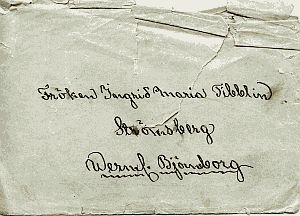 Fröken Ingrid Maria Tibblin
Strömsberg
Werml. Björneborg